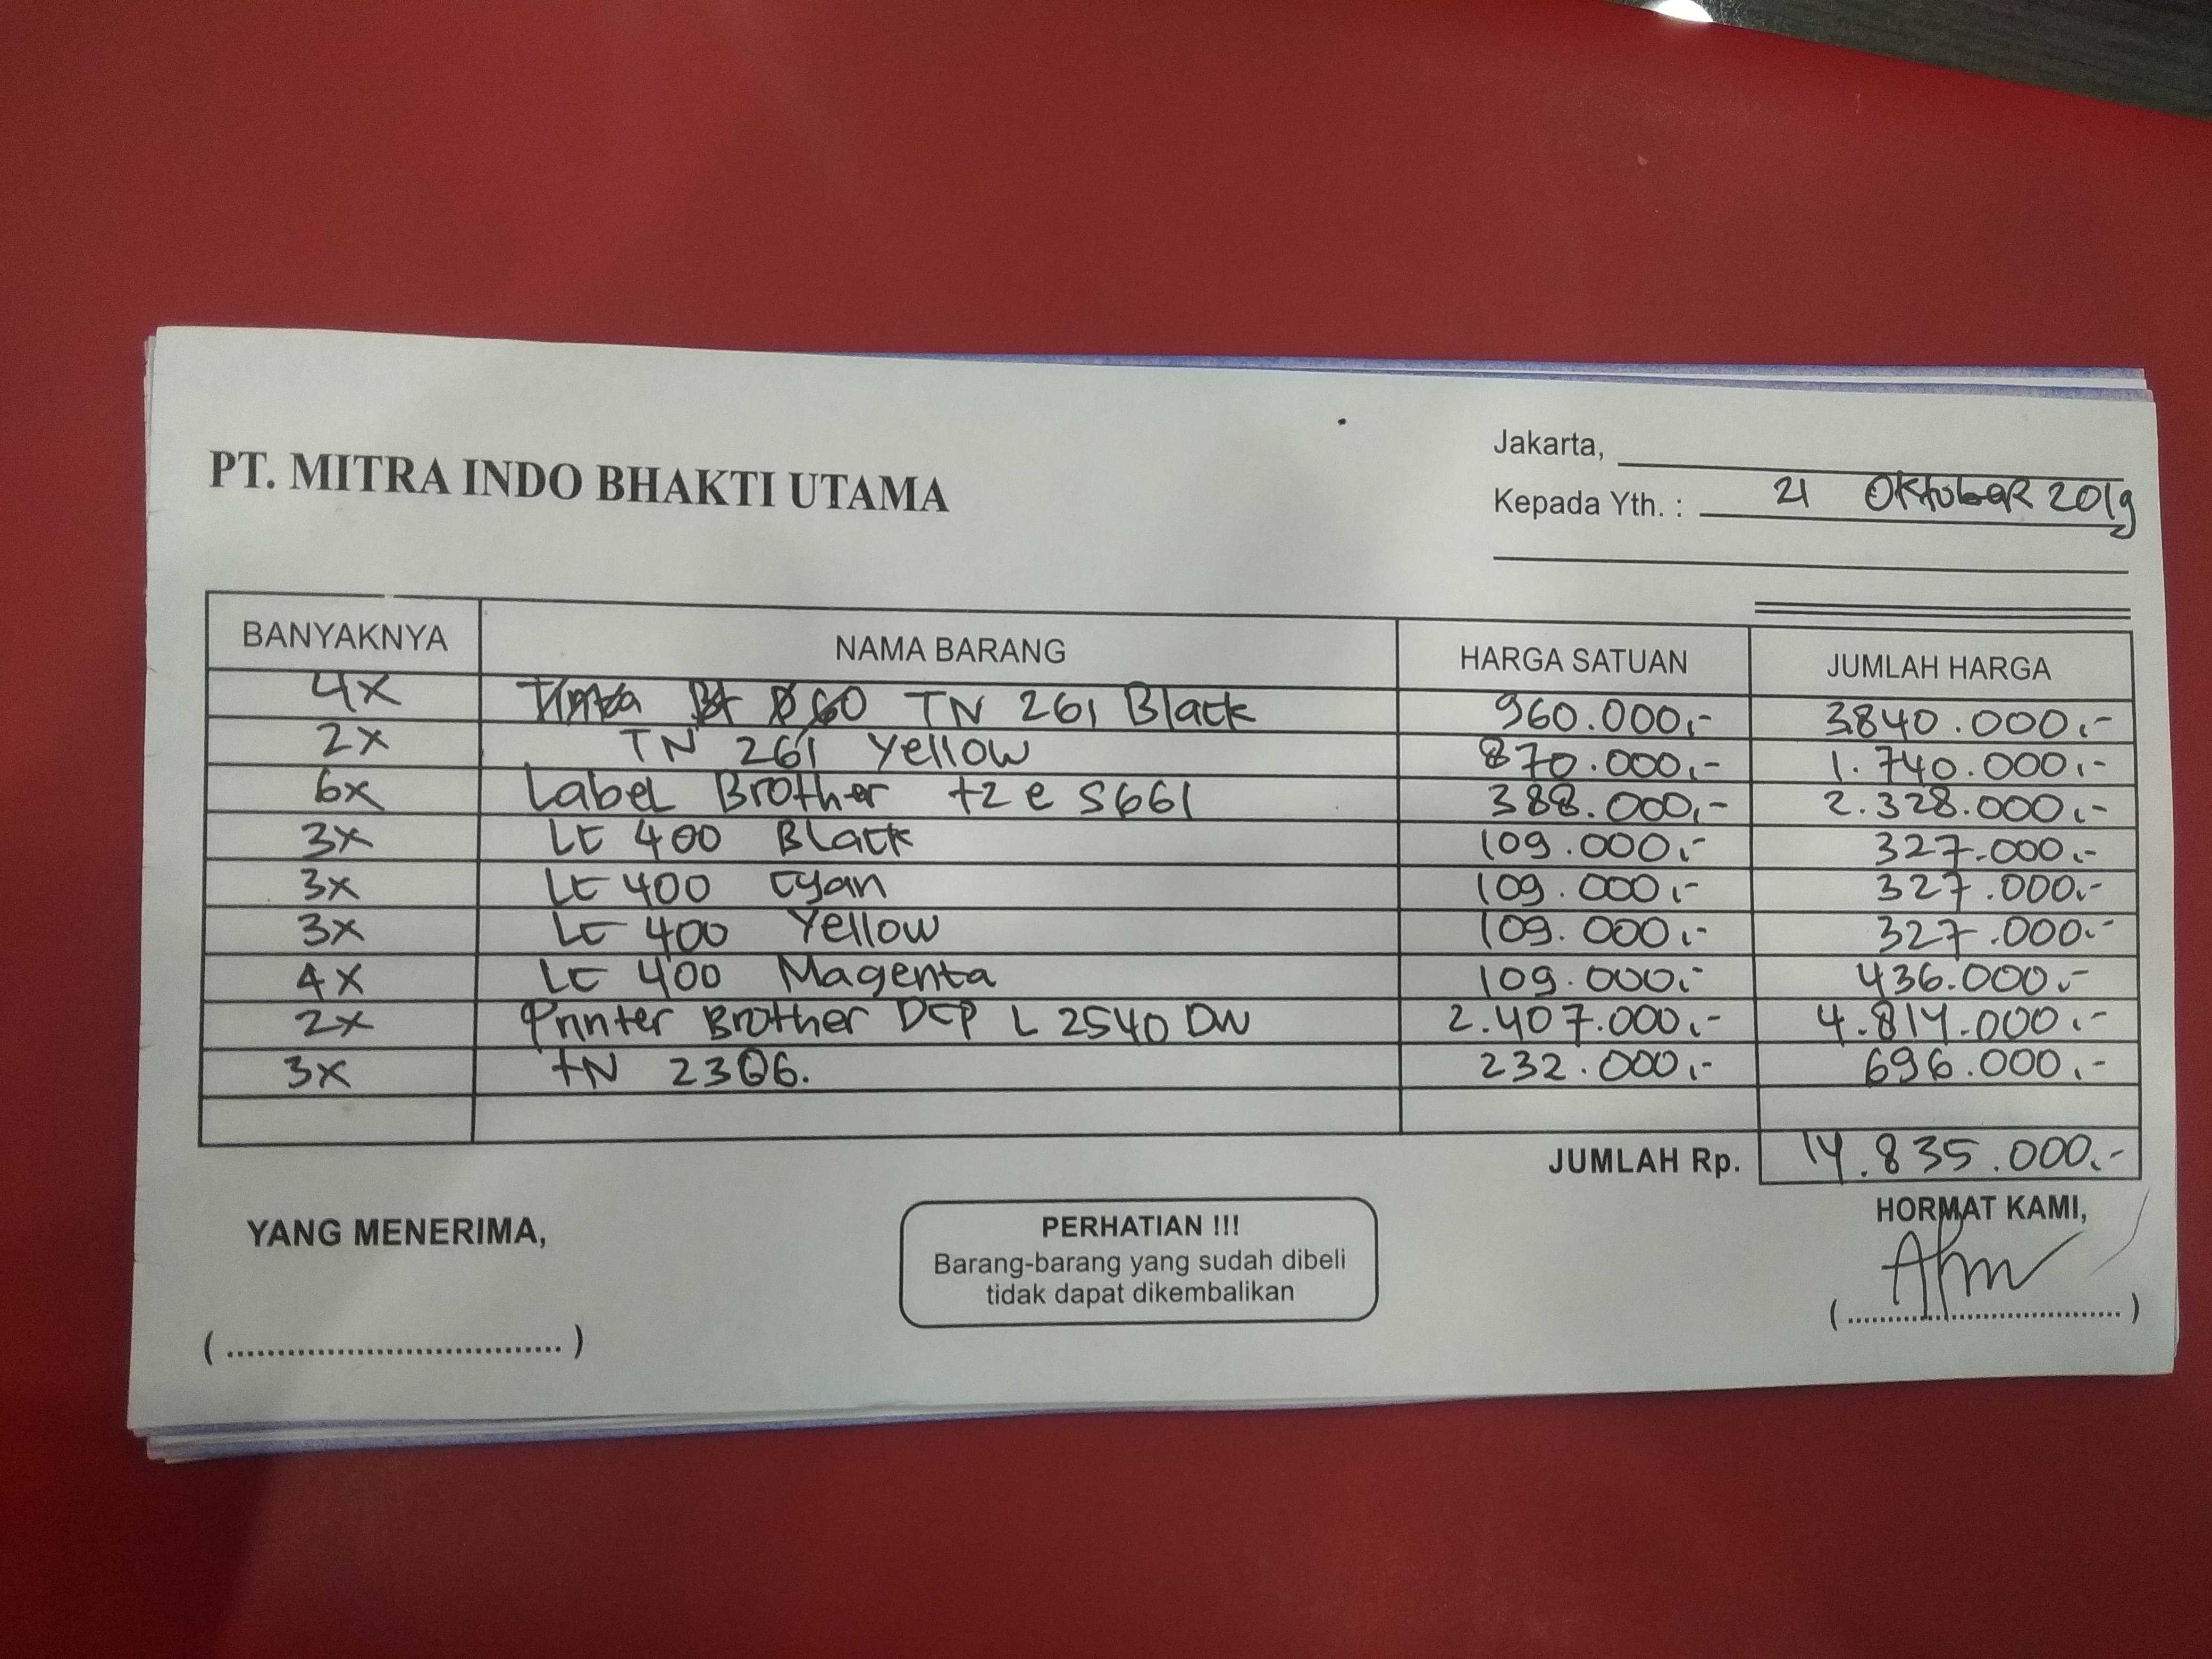 PT. MITRA INDO BHAKTI UTAMA
Jakarta,
Kepada Yth. : 21 Oktober 2019
BANYAKNYA NAMA BARANG HARGA SATUAN JUMLAH HARGA
4x TN 261 Black 960.000,- 3.840.000,-
2x TN 261 Yellow 870.000,- 1.740.000,-
6x Label Brother tz e S661 388.000,- 2.328.000,-
3x LC 400 Black 109.000,- 327.000,-
3x LC 400 Cyan 109.000,- 327.000,-
3x LC 400 Yellow 109.000,- 327.000,-
4x LC 400 Magenta 109.000,- 436.000,-
2x Printer Brother DCP L 2540 DW 2.407.000,- 4.814.000,-
3x TN 2306. 232.000,- 696.000,-
JUMLAH Rp. 14.835.000,-
YANG MENERIMA,
PERHATIAN !!!
Barang-barang yang sudah dibeli
tidak dapat dikembalikan
HORMAT KAMI,